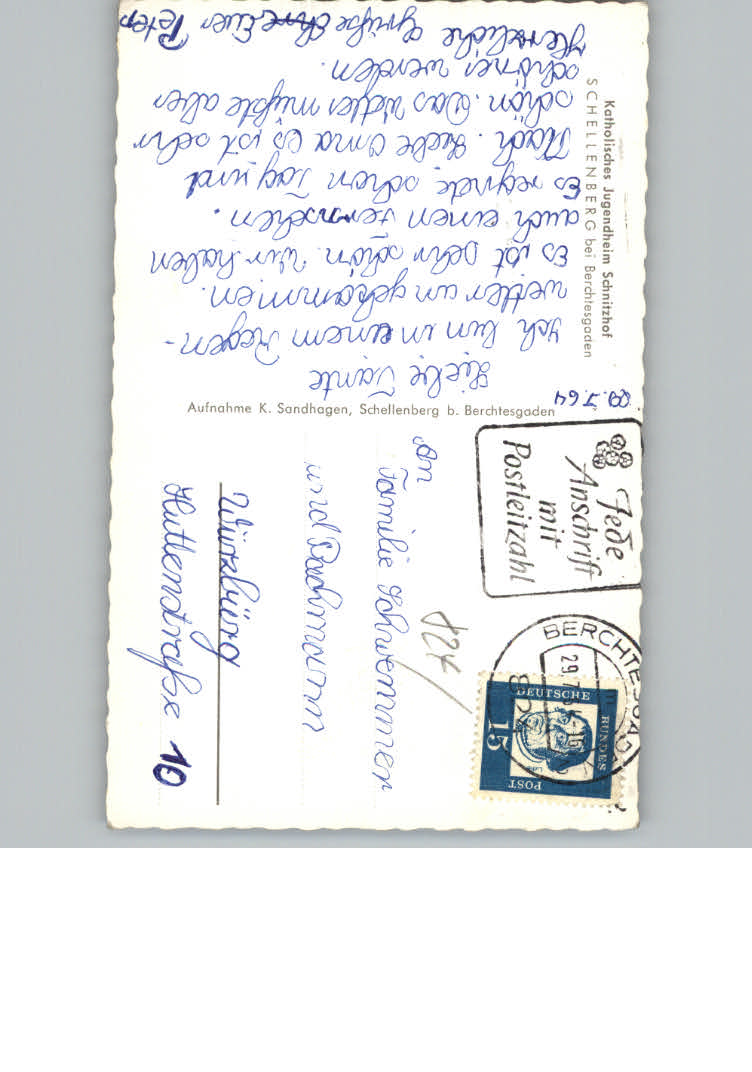 Katholisches Jugendheim Schnitzhof
SCHELLENBERG bei Berchtesgaden
29.7.64
Liebe Tante
Ich bin in einem Regen-
wetter angekommen.
Es ist sehr schön. Wir haben
auch einen Fernsehen.
Es regnete schon Tag und
Nach. Liebe Oma es ist sehr
schön. Das Wetter müßte aber
schöner werden.
Herzliche Grüße Euer Peter
Aufnahme K. Sandhagen, Schellenberg b. Berchtesgaden
Jede
Anschrift
mit
Postleitzahl
BERCHTESGADEN
29.7.64-16
DEUTSCHE
BUNDES
POST
15
824
An
Familie Schwemmer
und Bachmann
Würzbürg
Huttenstraße 10